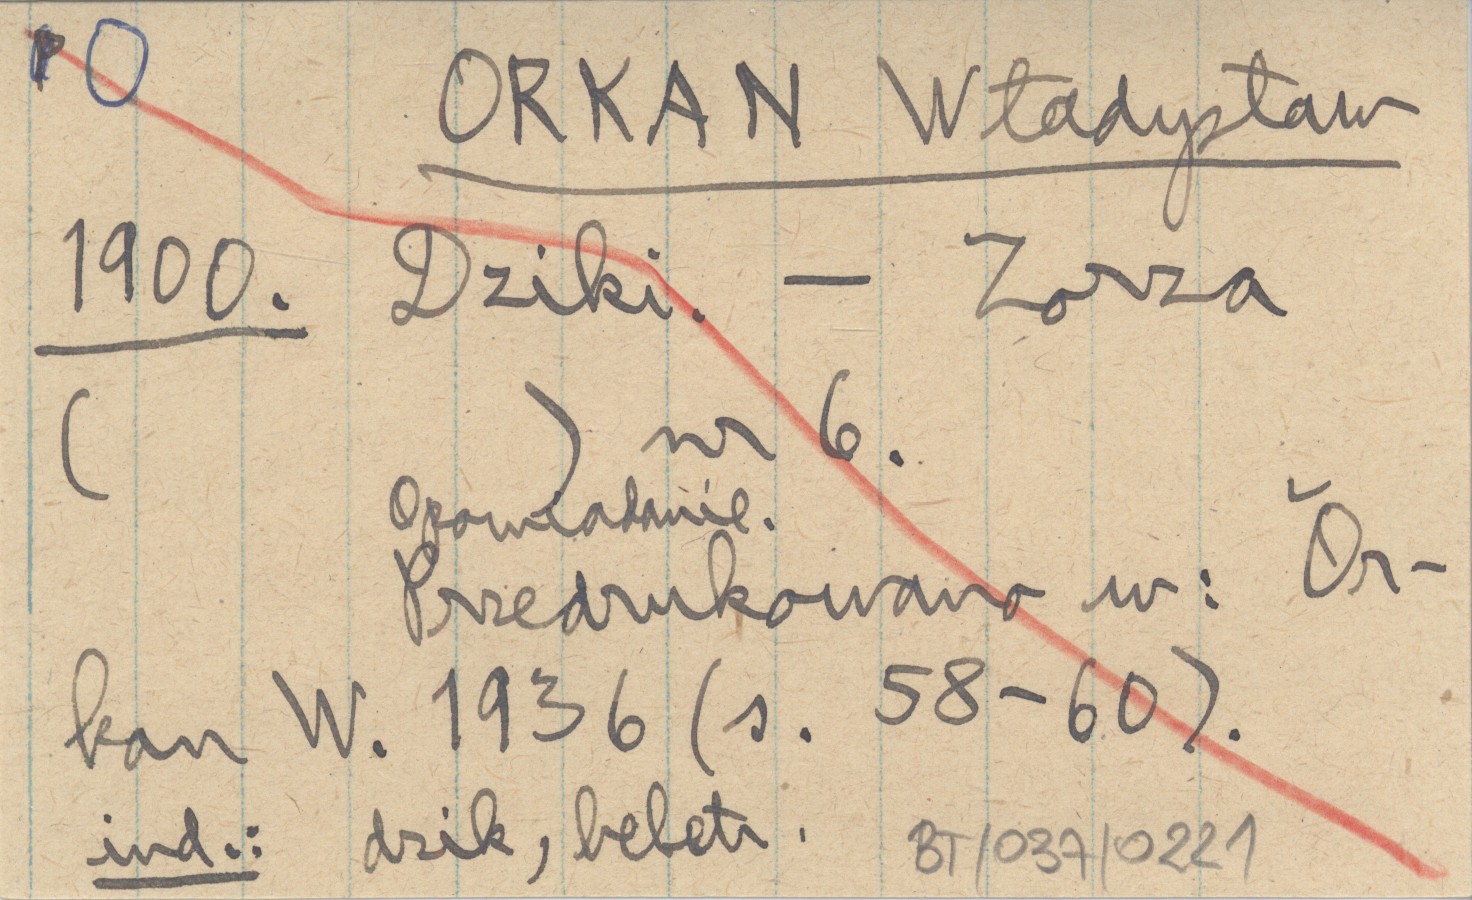 P O
ORKAN Władysław
1900. Dziki. — Zorza
( ) nr 6.
Opowiadanie.
Przedrukowano w: Or-
kan W. 1936 (s. 58-60).
ind.: dzik, beletr.
BT/037/0221